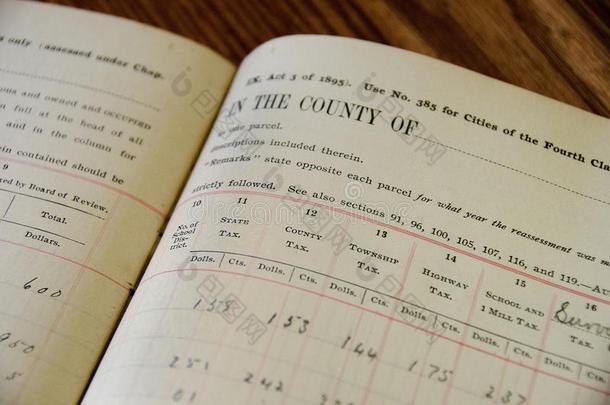 s only (assessed under Chap.
ous and owned and OCCUPIED
n full at the head of all
and in the column for
ein contained should be
9
ed by Board of Review.
Total.
Dollars.
600
950
5
EN, Act 3 of 1895). Use No. 385 for Cities of the Fourth Cla
IN THE COUNTY OF
one parcel.
descriptions included therein.
"Remarks" state opposite each parcel for what year the reassessment was m
strictly followed. See also sections 91, 96, 100, 105, 107, 116, and 119.—Au
10 11 12 13 14 15 16
No. of School District. STATE TAX. COUNTY TAX. TOWNSHIP TAX. HIGHWAY TAX. SCHOOL AND 1 MILL TAX. TAX.
Dolls. Cts. Dolls. Cts. Dolls. Cts. Dolls. Cts. Dolls. Cts. Dolls.
153 144 175
251 242 237